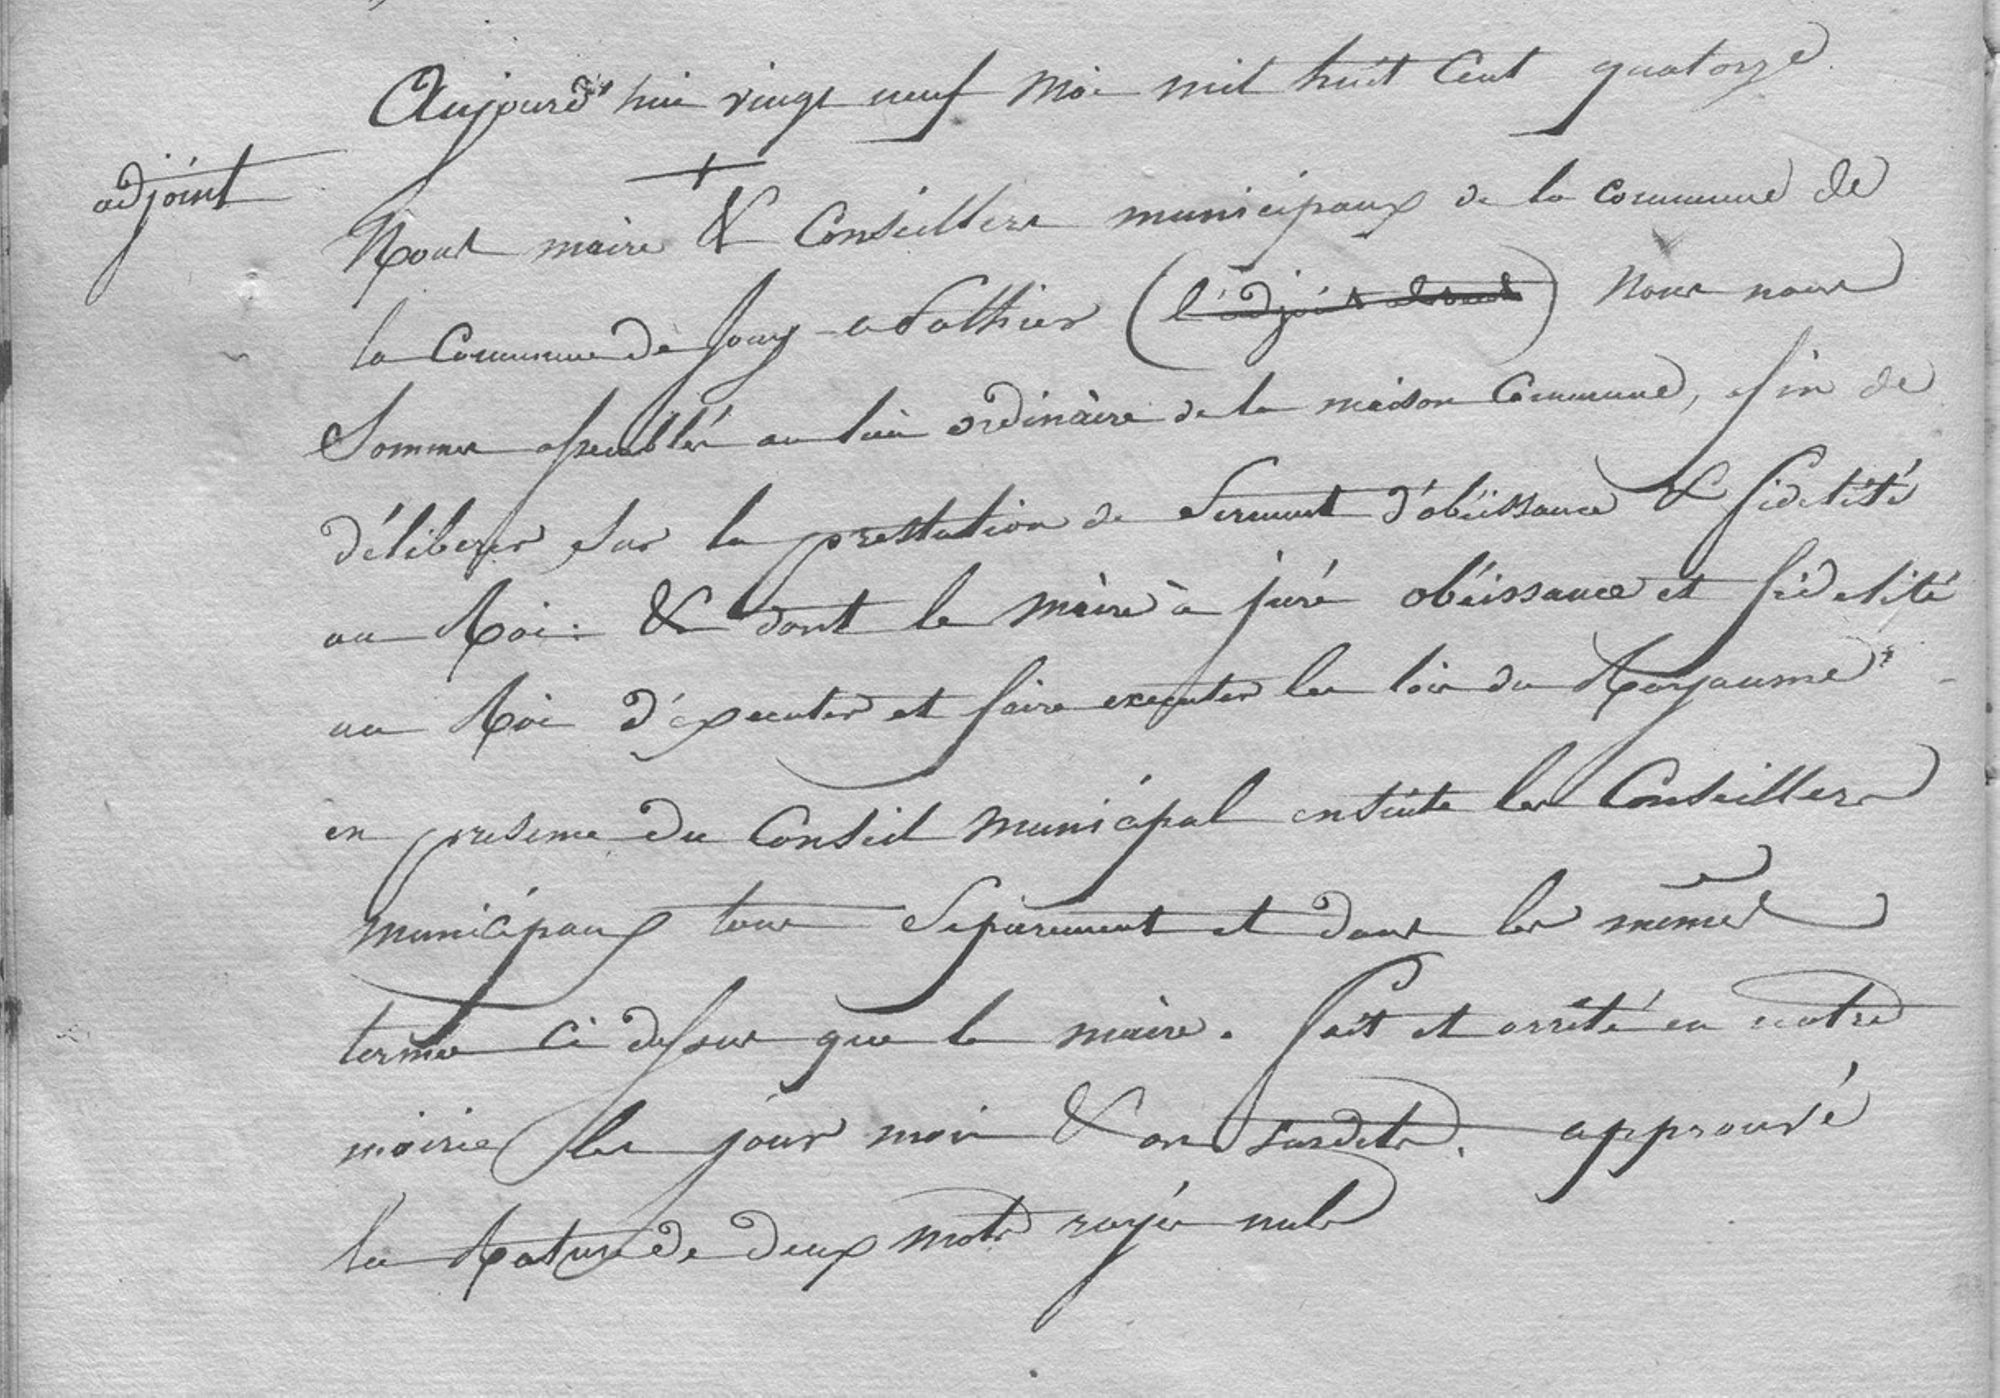 Aujourd'hui vingt neuf Mai mil huit Cent quatorze
adjoint
Nous maire & Conseillers municipaux de la commune de
la Commune de Jouy (l'adjoint absent) Nous nous
Sommes assemblés au lieu ordinaire de la maison Commune, afin de
délibérer Sur la prestation de Serment d'obéissance & fidelité
au Roi: & dont le Maire à juré obéissance et fidelité
au Roi d'éxecuter et faire executer les lois du Royaume
en presence du Conseil Municipal ensuite les Conseillers
municipaux tous Séparement et dans les mêmes
termes Ci dessus que le maire. Fait et arrêté en notre
mairie les jour mois & an susdits. approuvé
la Rature de deux mots rayés nuls